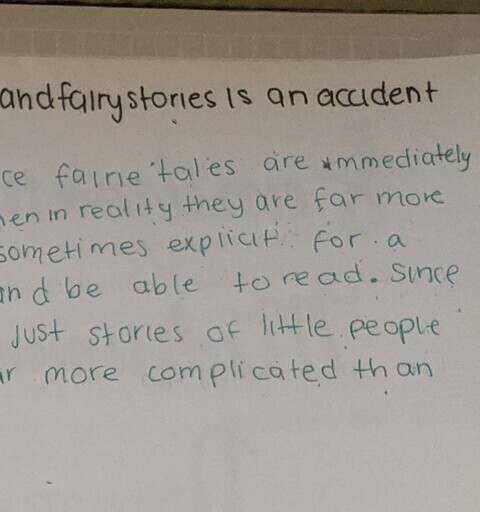 and fairy stories is an accident
ce fairie tales are immediately
hen in reality they are far more
sometimes explicit for a
and be able to read. Since
just stories of little people
ar more complicated than